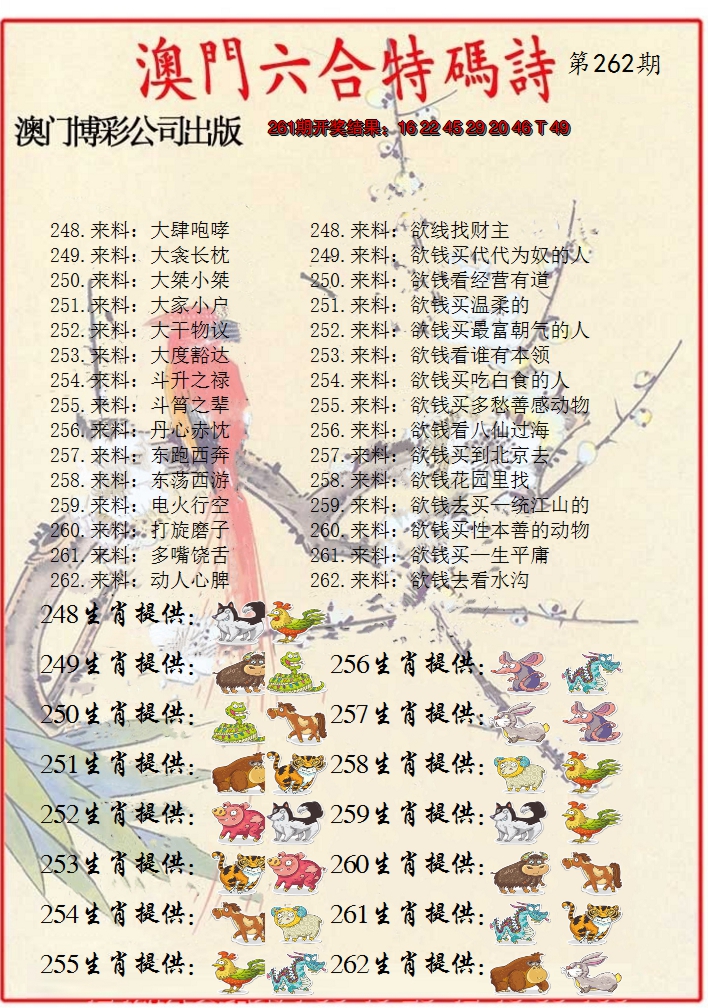 澳門六合特碼詩 第262期
澳门博彩公司出版 261期开奖结果：16 22 45 29 20 46 T 49
248.来料：大肆咆哮 248.来料：欲线找财主
249.来料：大衾长枕 249.来料：欲钱买代代为奴的人
250.来料：大桀小桀 250.来料：欲钱看经营有道
251.来料：大家小户 251.来料：欲钱买温柔的
252.来料：大干物议 252.来料：欲钱买最富朝气的人
253.来料：大度豁达 253.来料：欲钱看谁有本领
254.来料：斗升之禄 254.来料：欲钱买吃白食的人
255.来料：斗筲之辈 255.来料：欲钱买多愁善感动物
256.来料：丹心赤忱 256.来料：欲钱看八仙过海
257.来料：东跑西奔 257.来料：欲钱买到北京去
258.来料：东荡西游 258.来料：欲钱花园里找
259.来料：电火行空 259.来料：欲钱去买一统江山的
260.来料：打旋磨子 260.来料：欲钱买性本善的动物
261.来料：多嘴饶舌 261.来料：欲钱买一生平庸
262.来料：动人心脾 262.来料：欲钱去看水沟
248生肖提供：
249生肖提供： 256生肖提供：
250生肖提供： 257生肖提供：
251生肖提供： 258生肖提供：
252生肖提供： 259生肖提供：
253生肖提供： 260生肖提供：
254生肖提供： 261生肖提供：
255生肖提供： 262生肖提供：